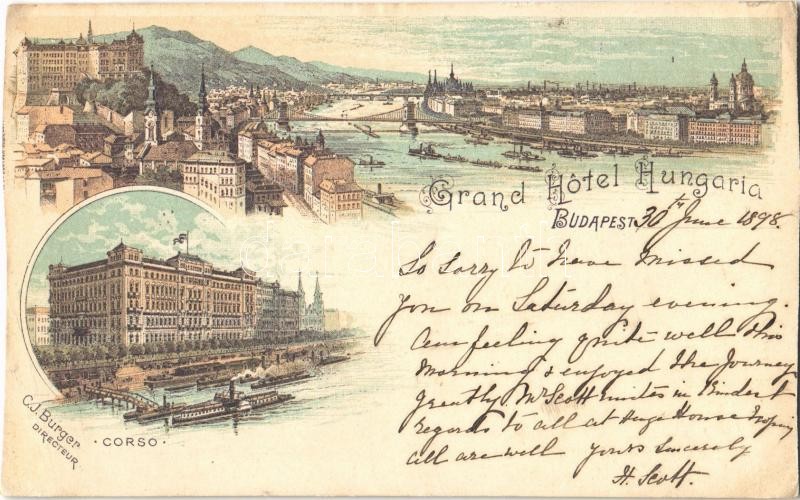 Grand Hôtel Hungaria
BUDAPEST, 30th June 1898.
So sorry to have missed
you on Saturday evening.
Am feeling quite well this
morning & enjoyed the Journey
greatly Mr Scott unites in Kindest
regards to all at House hoping
all are well yours Sincerely
H. Scott.
C.J. Burger
DIRECTEUR
· CORSO ·